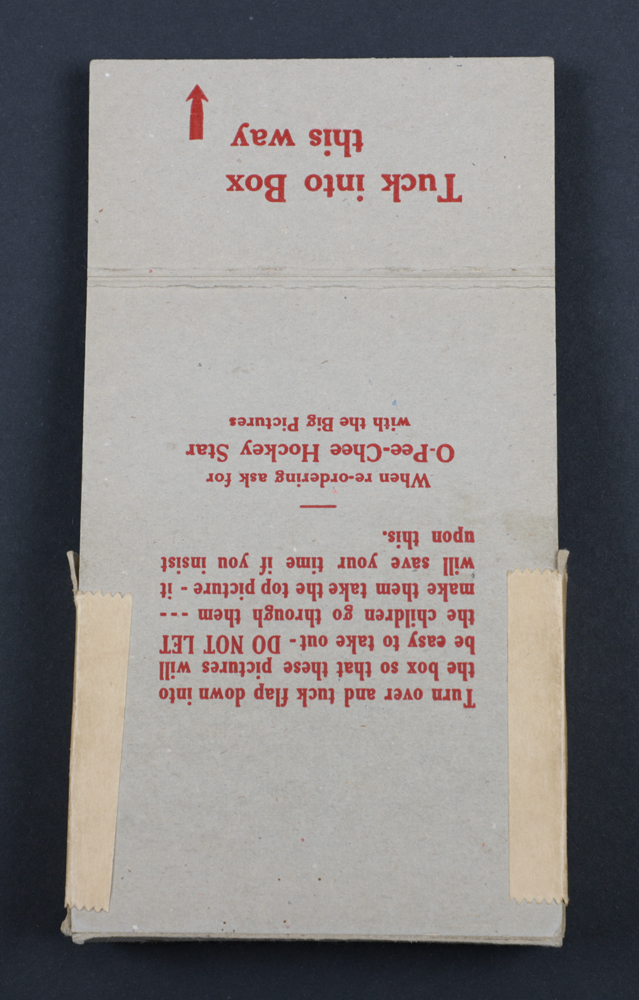 Turn over and tuck flap down into
the box so that these pictures will
be easy to take out - DO NOT LET
the children go through them ---
make them take the top picture - it
will save your time if you insist
upon this.
When re-ordering ask for
O-Pee-Chee Hockey Star
with the Big Pictures
Tuck into Box
this way